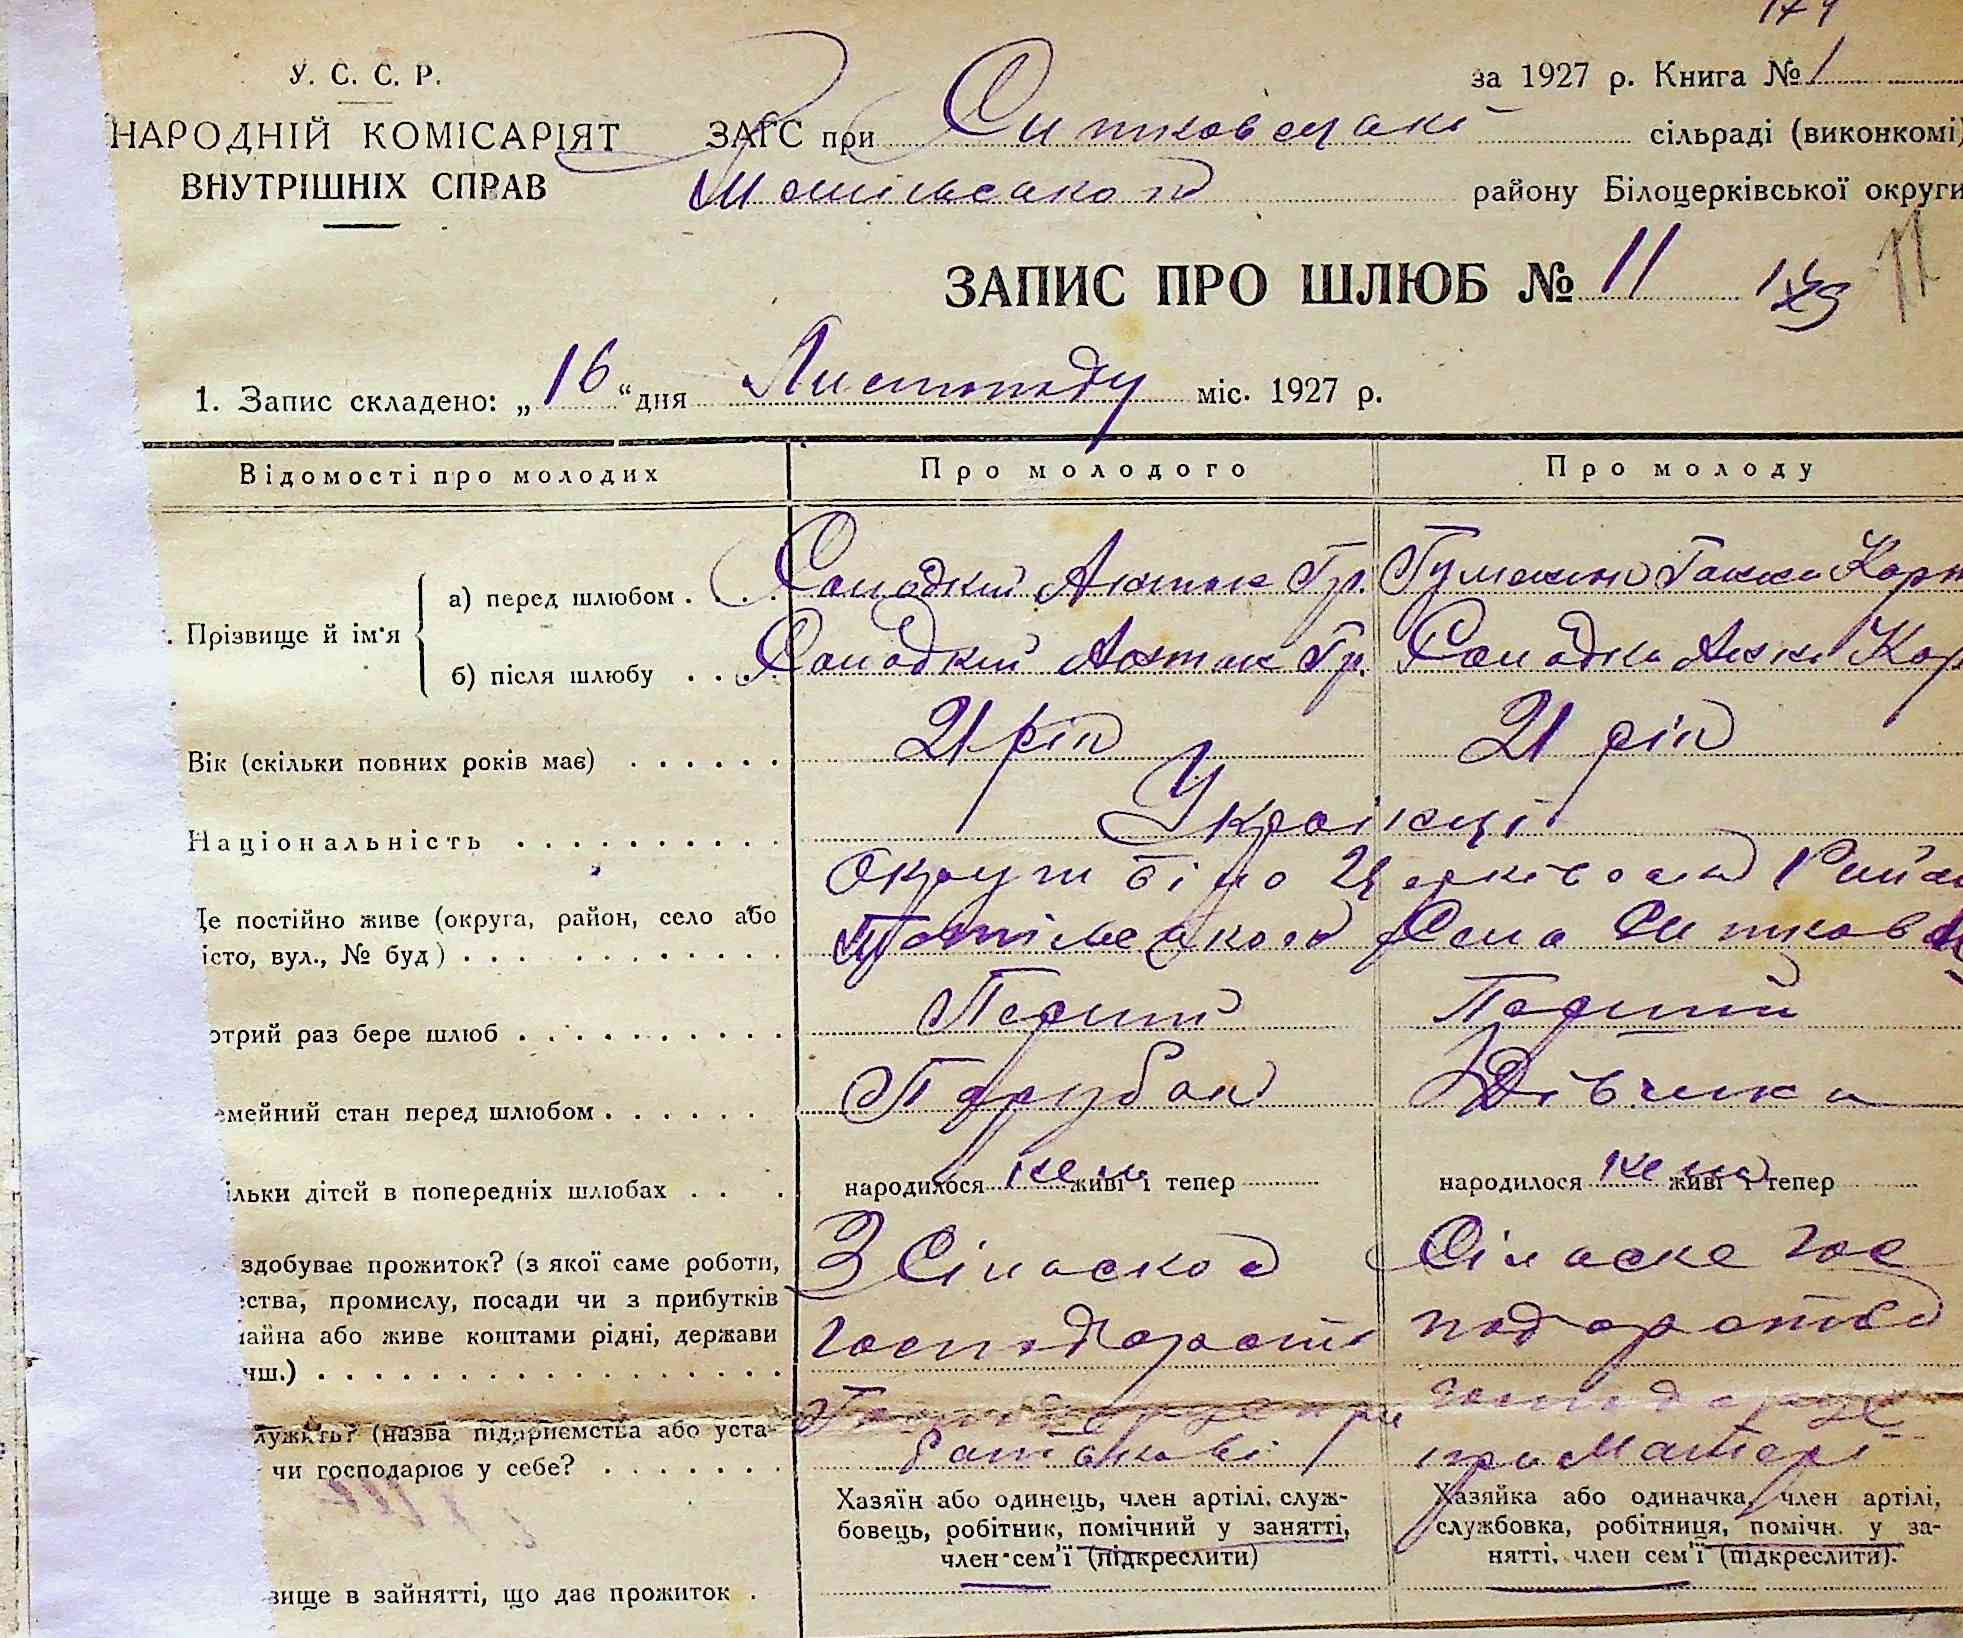 174
У. С. С. Р.
за 1927 р. Книга № 1
НАРОДНІЙ КОМІСАРІЯТ
ЗАГС при Ситковецькі сільраді (виконкомі)
ВНУТРІШНІХ СПРАВ
району Білоцерківської округи
ЗАПИС ПРО ШЛЮБ № 11
11
1. Запис складено: „16“ дня Листопаду міс. 1927 р.
Відомості про молодих
Про молодого
Про молоду
Прізвище й ім'я
а) перед шлюбом . . . .
Солодкий Антон Гр.
Ганна Карп
б) після шлюбу . . . .
Солодкий Антон Гр.
Солодка Ганна Кар
Вік (скільки повних років має) . . . . . .
21 рік
21 рік
Національність . . . . . . . . . .
Українці
Де постійно живе (округа, район, село або
істо, вул., № буд) . . . . . . . . . . .
Округи Білоцерківсько Район
Села Ситковець
отрий раз бере шлюб . . . . . . . . . .
Перший
Перший
емейний стан перед шлюбом . . . . . .
Парубок
Дівчина
ільки дітей в попередніх шлюбах . . . .
народилося нема живі і тепер
народилося нема живі і тепер
здобуває прожиток? (з якої саме роботи,
ества, промислу, посади чи з прибутків
майна або живе коштами рідні, держави
нш.) . . . . . . . . . . . . . . . . . .
З Сільсково
господарств
Сільске гос
подарство
лужить? (назва підприємства або уста-
чи господарює у себе? . . . . . . .
Господарує при
батькові
господарує
при Матері
Хазяїн або одинець, член артілі, служ-
бовець, робітник, помічний у занятті,
член сем'ї (підкреслити)
Хазяйка або одиначка, член артілі,
службовка, робітниця, помічн. у за-
нятті, член сем'ї (підкреслити).
вище в зайнятті, що дає прожиток .